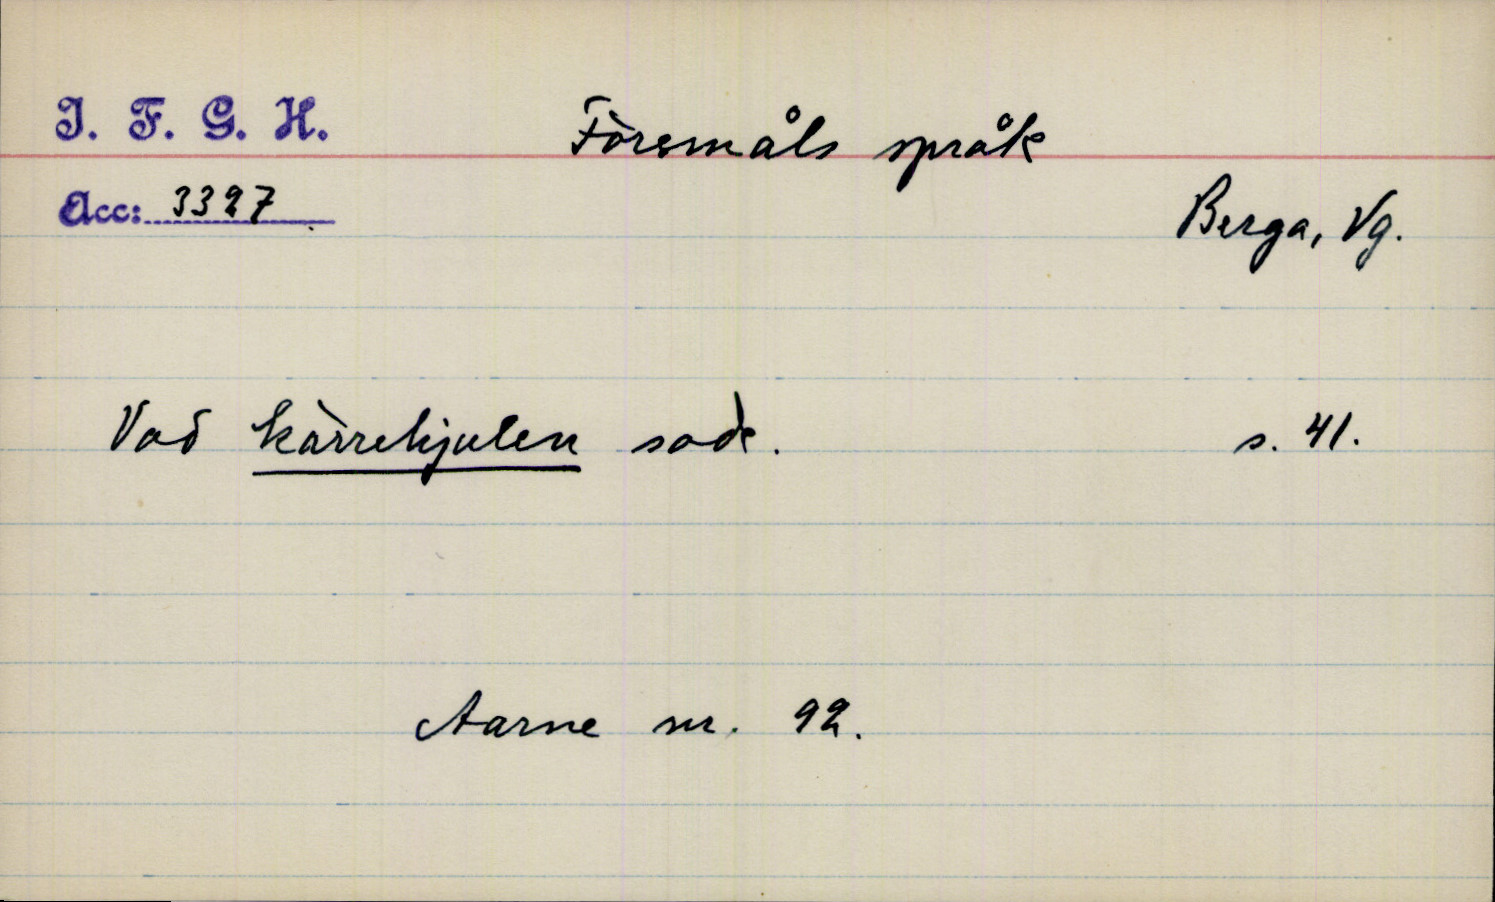 I. F. G. H.
Föremåls språk
Acc: 3327
Berga, Vg.
Vad kärrehjulen sade. s. 41.
Aarne nr. 92.